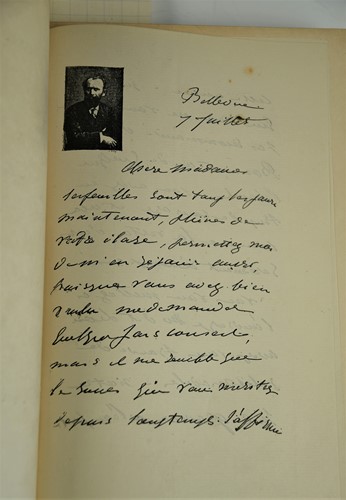 Bellevue
7 Juillet
Chère Madame
les feuilles sont tous les jours
maintenant, pleines de
votre éloge, permettez moi
de m'en réjouir aussi,
puisque vous avez bien
voulu me demander
quelquefois conseil,
mais il me semble que
le succès que vous méritez
depuis longtemps s'affirme